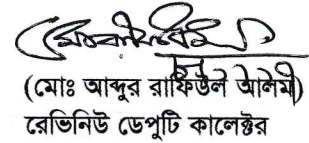 (মোঃ আব্দুর রাফিউল আলম)
রেভিনিউ ডেপুটি কালেক্টর